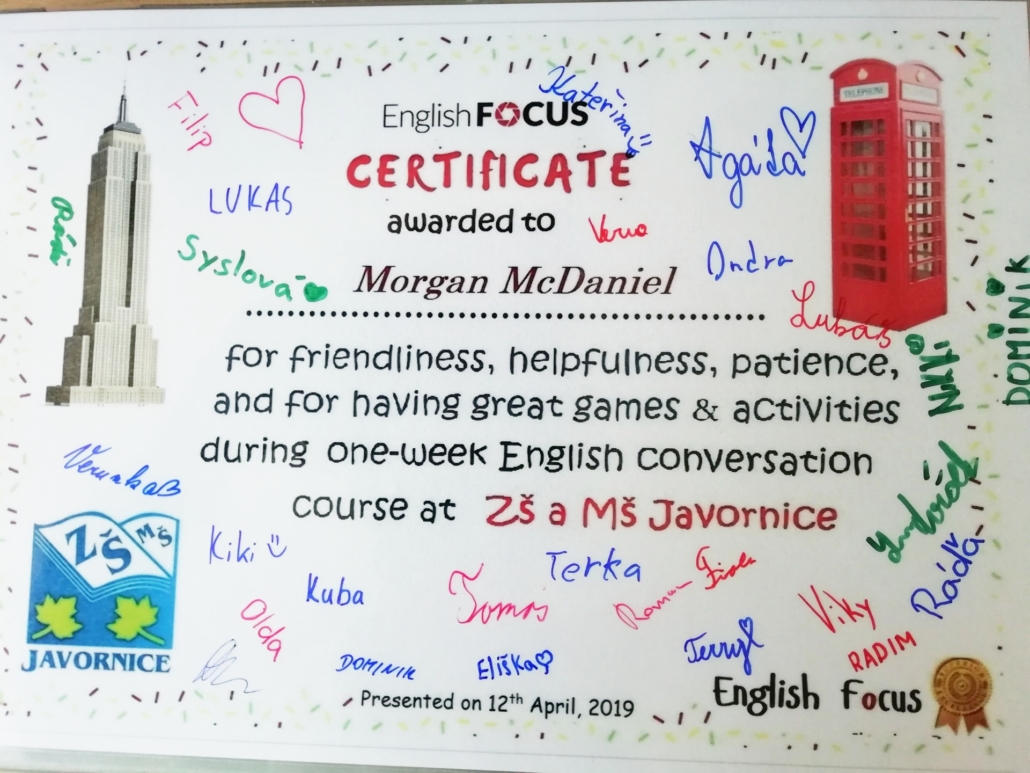 English FOCUS
Kateřina
TELEPHONE
Filip
Agáta
CERTIFICATE
LUKAS
awarded to
Ondra
Syslová
Morgan McDaniel
Lubáš
DOMINIK
for friendliness, helpfulness, patience,
NiKi
and for having great games & activities
during one-week English conversation
course at ZŠ a MŠ Javornice
ZŠ MŠ
JAVORNICE
Kiki
Terka
Ráďa
Kuba
Tomáš
Roman Fiala
Viky
Olda
RADIM
DOMINIK
Eliška
Terryl
Presented on 12th April, 2019
English Focus